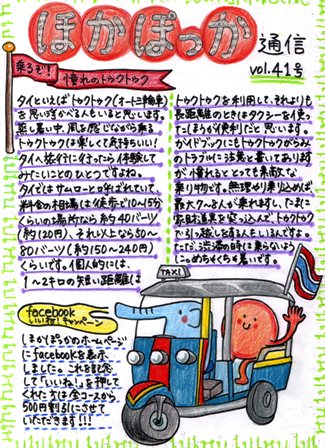 ほかぽっか
通信
vol.41号
乗るぞ!
憧れのトゥクトゥク
タイといえばトゥクトゥク(オート三輪車)
を思い浮かべる人もいると思います。
蒸し暑い中、風を感じながら乗る
トゥクトゥクは楽しくて気持ちいい!
タイへ旅行に行ったら体験して
みたいことのひとつですよね。
タイではサムローとの呼ばれていて、
料金の相場は徒歩で10~15分
くらいの場所なら約40バーツ
(約120円)、それ以上なら50~
80バーツ(約150~240円)
くらいです。個人的には、
1~2キロの短い距離は
トゥクトゥクを利用して、それよりも
長距離のときはタクシーを使っ
たほうが便利だと思います。
ガイドブックにもトゥクトゥクがらみ
のトラブルに注意と書いてあります
が憧れるとっても素敵な
乗り物です。無理やり乗り込めば、
最大7~8人が乗れますし、たまに
家財道具を突っ込んで、トゥクトゥク
で引っ越しをする人もいるんですよ。
ただ、渋滞の時は乗らないよう
に。めちゃくちゃ暑いです。
TAXI
facebook
いいね!キャンペーン
ほかぽっかのホームページ
にfacebookを表示
しました。これを記念
して「いいね!」を押して
くれた方は全コースから
500円割引にさせて
いただきます!!!